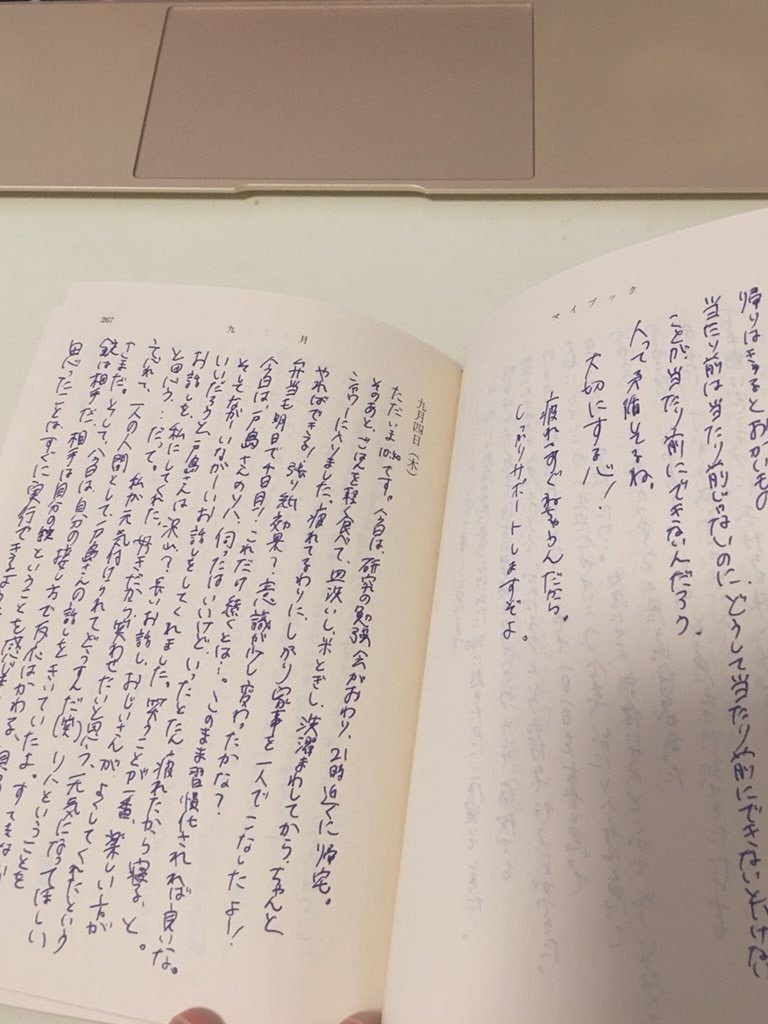 マイブック
帰りはきちっとおかいもの
当たり前は当たり前じゃないのに、どうして当たり前にできないとけな
ことが、当たり前にできないんだろう。
人って不備よね。
大切にする心!
疲れ、すぐねちゃうんだから。
しっかりサポートしますぞよ。
267
九月
九月四日(木)
ただいま10:50です。今日は、研究の勉強会がおわり、21時近くに帰宅。
そのあと、ごはんを軽く食べて、皿洗いし、米とぎし、洗濯まわしてから、ちゃんと
シャワーに入りました。疲れてるわりに、しっかり家事を一人でこなしたよ!
やればできる!張り紙効果?意識が少し変わったかな?
弁当も明日で4日目!これだけ続くとは…。このまま習慣化されれば良いな。
今日は、戸島さんのソバ、伺ったはいいけど、いったとたん疲れたから寝る、と。
そして、ながいながーいお話しをしてくれました。笑うことが一番、楽しい方が
いいだろうと戸島さんは沢山?長いお話し、おじいさんが、よくしてくれたという
お話しを、私にしてくれた。好きだから、笑わせたいと思う、元気になってほしい
と思う…だって。私が元気付けられてどうすんだ(笑) 1人ということを
忘れて、一人の人間として、戸島さんの話しをきいていたよ。すてきなか
さまだ。そして、今日は、自分の接し方で反応はかわる、
鏡は相手だ、相手は自分の鏡ということを感じま
思ったことはすぐに実行できるよう